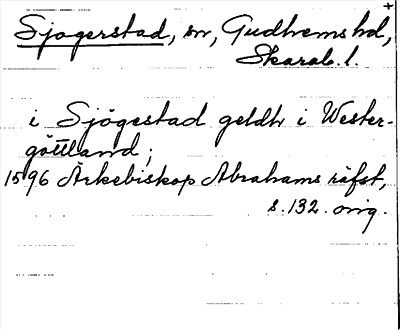 Sjogerstad, sn, Gudhems hd,
Skarab. l.
i Sjögestad geldh i Wester-
göttland;
1596 Ärkebiskop Abrahams räfst,
s. 132. orig.